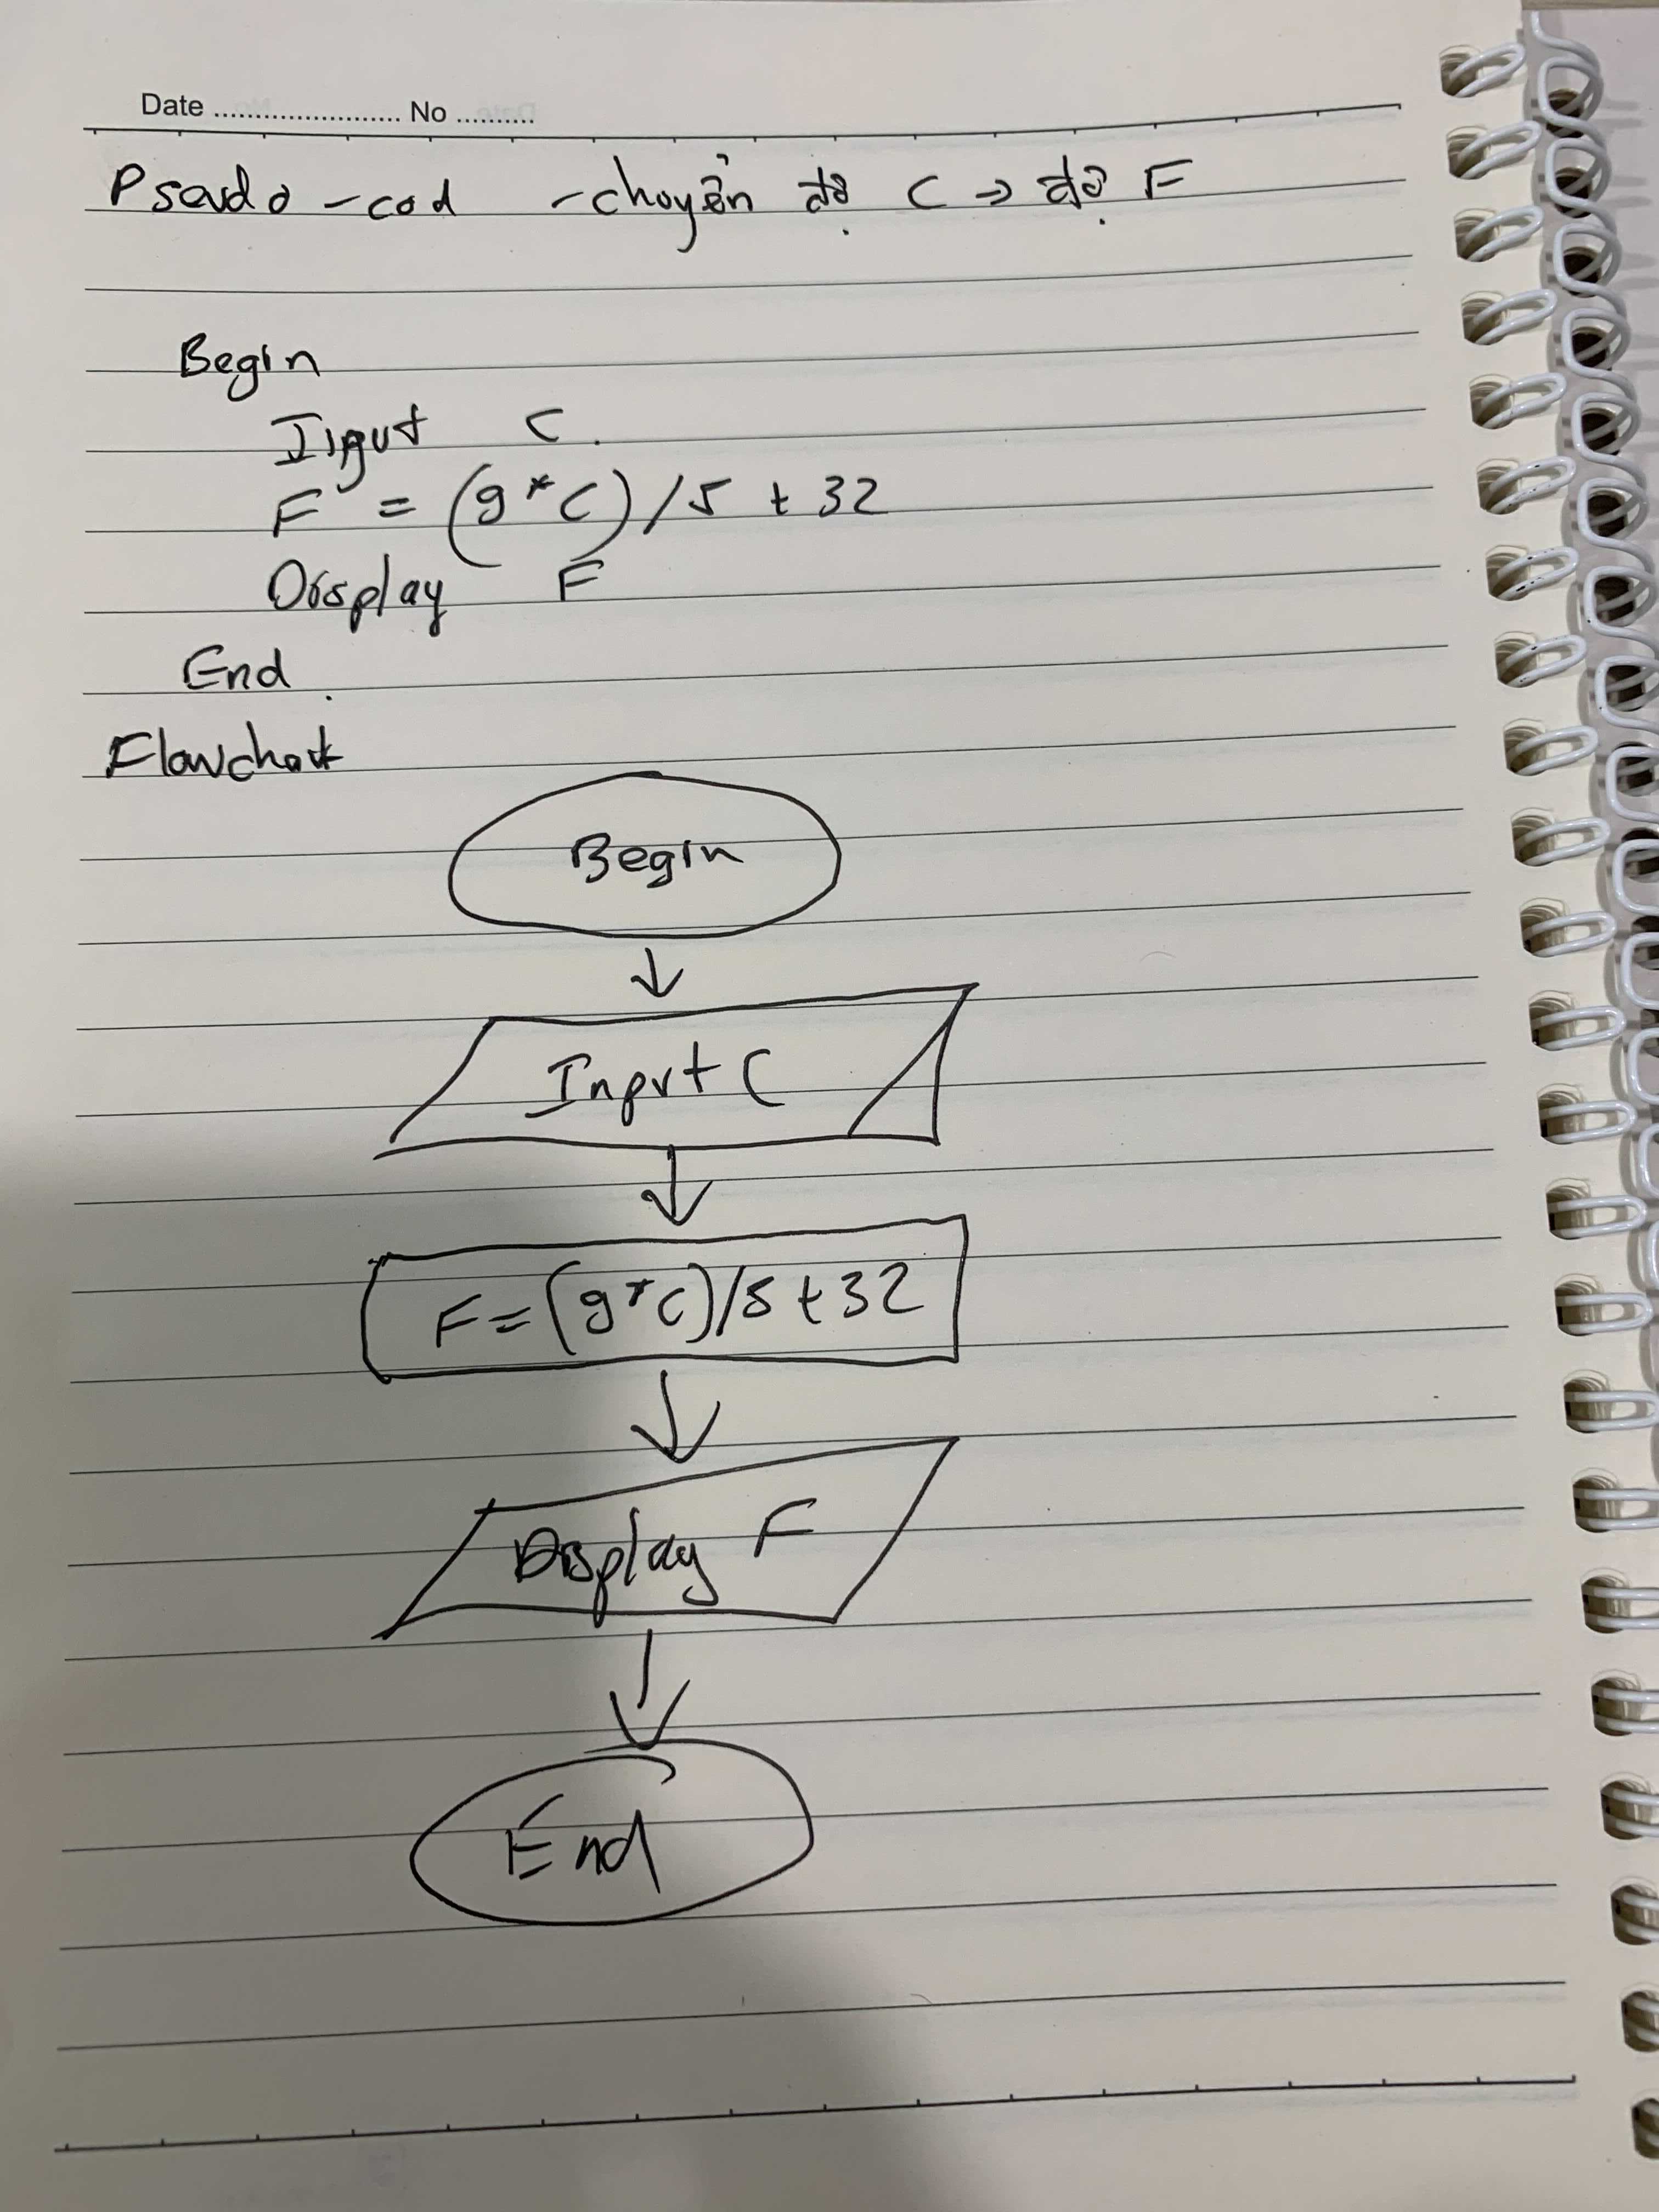 Date ........................ No ..........
Pseudo - cod - chuyển độ C → độ F
Begin
Input C.
F = (9*C)/5 + 32
Display F
End.
Flowchart
Begin
Input C
F = (9*C)/5 + 32
Display F
End